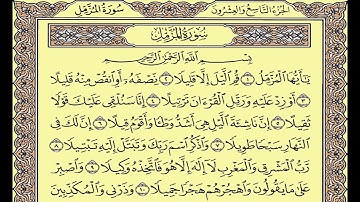 سُورَةُ المُزَّمِّل الجُزْءُ التَّاسِعُ وَالعِشْرُونَ
سُورَةُ المُزَّمِّلِ
بِسْمِ اللَّهِ الرَّحْمَٰنِ الرَّحِيمِ
يَٰٓأَيُّهَا ٱلْمُزَّمِّلُ ١ قُمِ ٱلَّيْلَ إِلَّا قَلِيلًا ٢ نِّصْفَهُۥٓ أَوِ ٱنقُصْ مِنْهُ قَلِيلًا
٣ أَوْ زِدْ عَلَيْهِ وَرَتِّلِ ٱلْقُرْءَانَ تَرْتِيلًا ٤ إِنَّا سَنُلْقِى عَلَيْكَ قَوْلًا
ثَقِيلًا ٥ إِنَّ نَاشِئَةَ ٱلَّيْلِ هِىَ أَشَدُّ وَطْـًٔا وَأَقْوَمُ قِيلًا ٦ إِنَّ لَكَ فِى
ٱلنَّهَارِ سَبْحًا طَوِيلًا ٧ وَٱذْكُرِ ٱسْمَ رَبِّكَ وَتَبَتَّلْ إِلَيْهِ تَبْتِيلًا ٨
رَّبُّ ٱلْمَشْرِقِ وَٱلْمَغْرِبِ لَآ إِلَٰهَ إِلَّا هُوَ فَٱتَّخِذْهُ وَكِيلًا ٩ وَٱصْبِرْ
عَلَىٰ مَا يَقُولُونَ وَٱهْجُرْهُمْ هَجْرًا جَمِيلًا ١٠ وَذَرْنِى وَٱلْمُكَذِّبِينَ